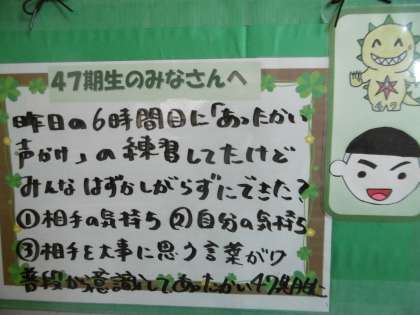 47期生のみなさんへ
昨日の6時間目に「あったかい
声かけ」の練習してたけど
みんなはずかしがらずにできた?
①相手の気持ち ②自分の気持ち
③相手を大事に思う言葉がけ
普段から意識してあったかい47期生に